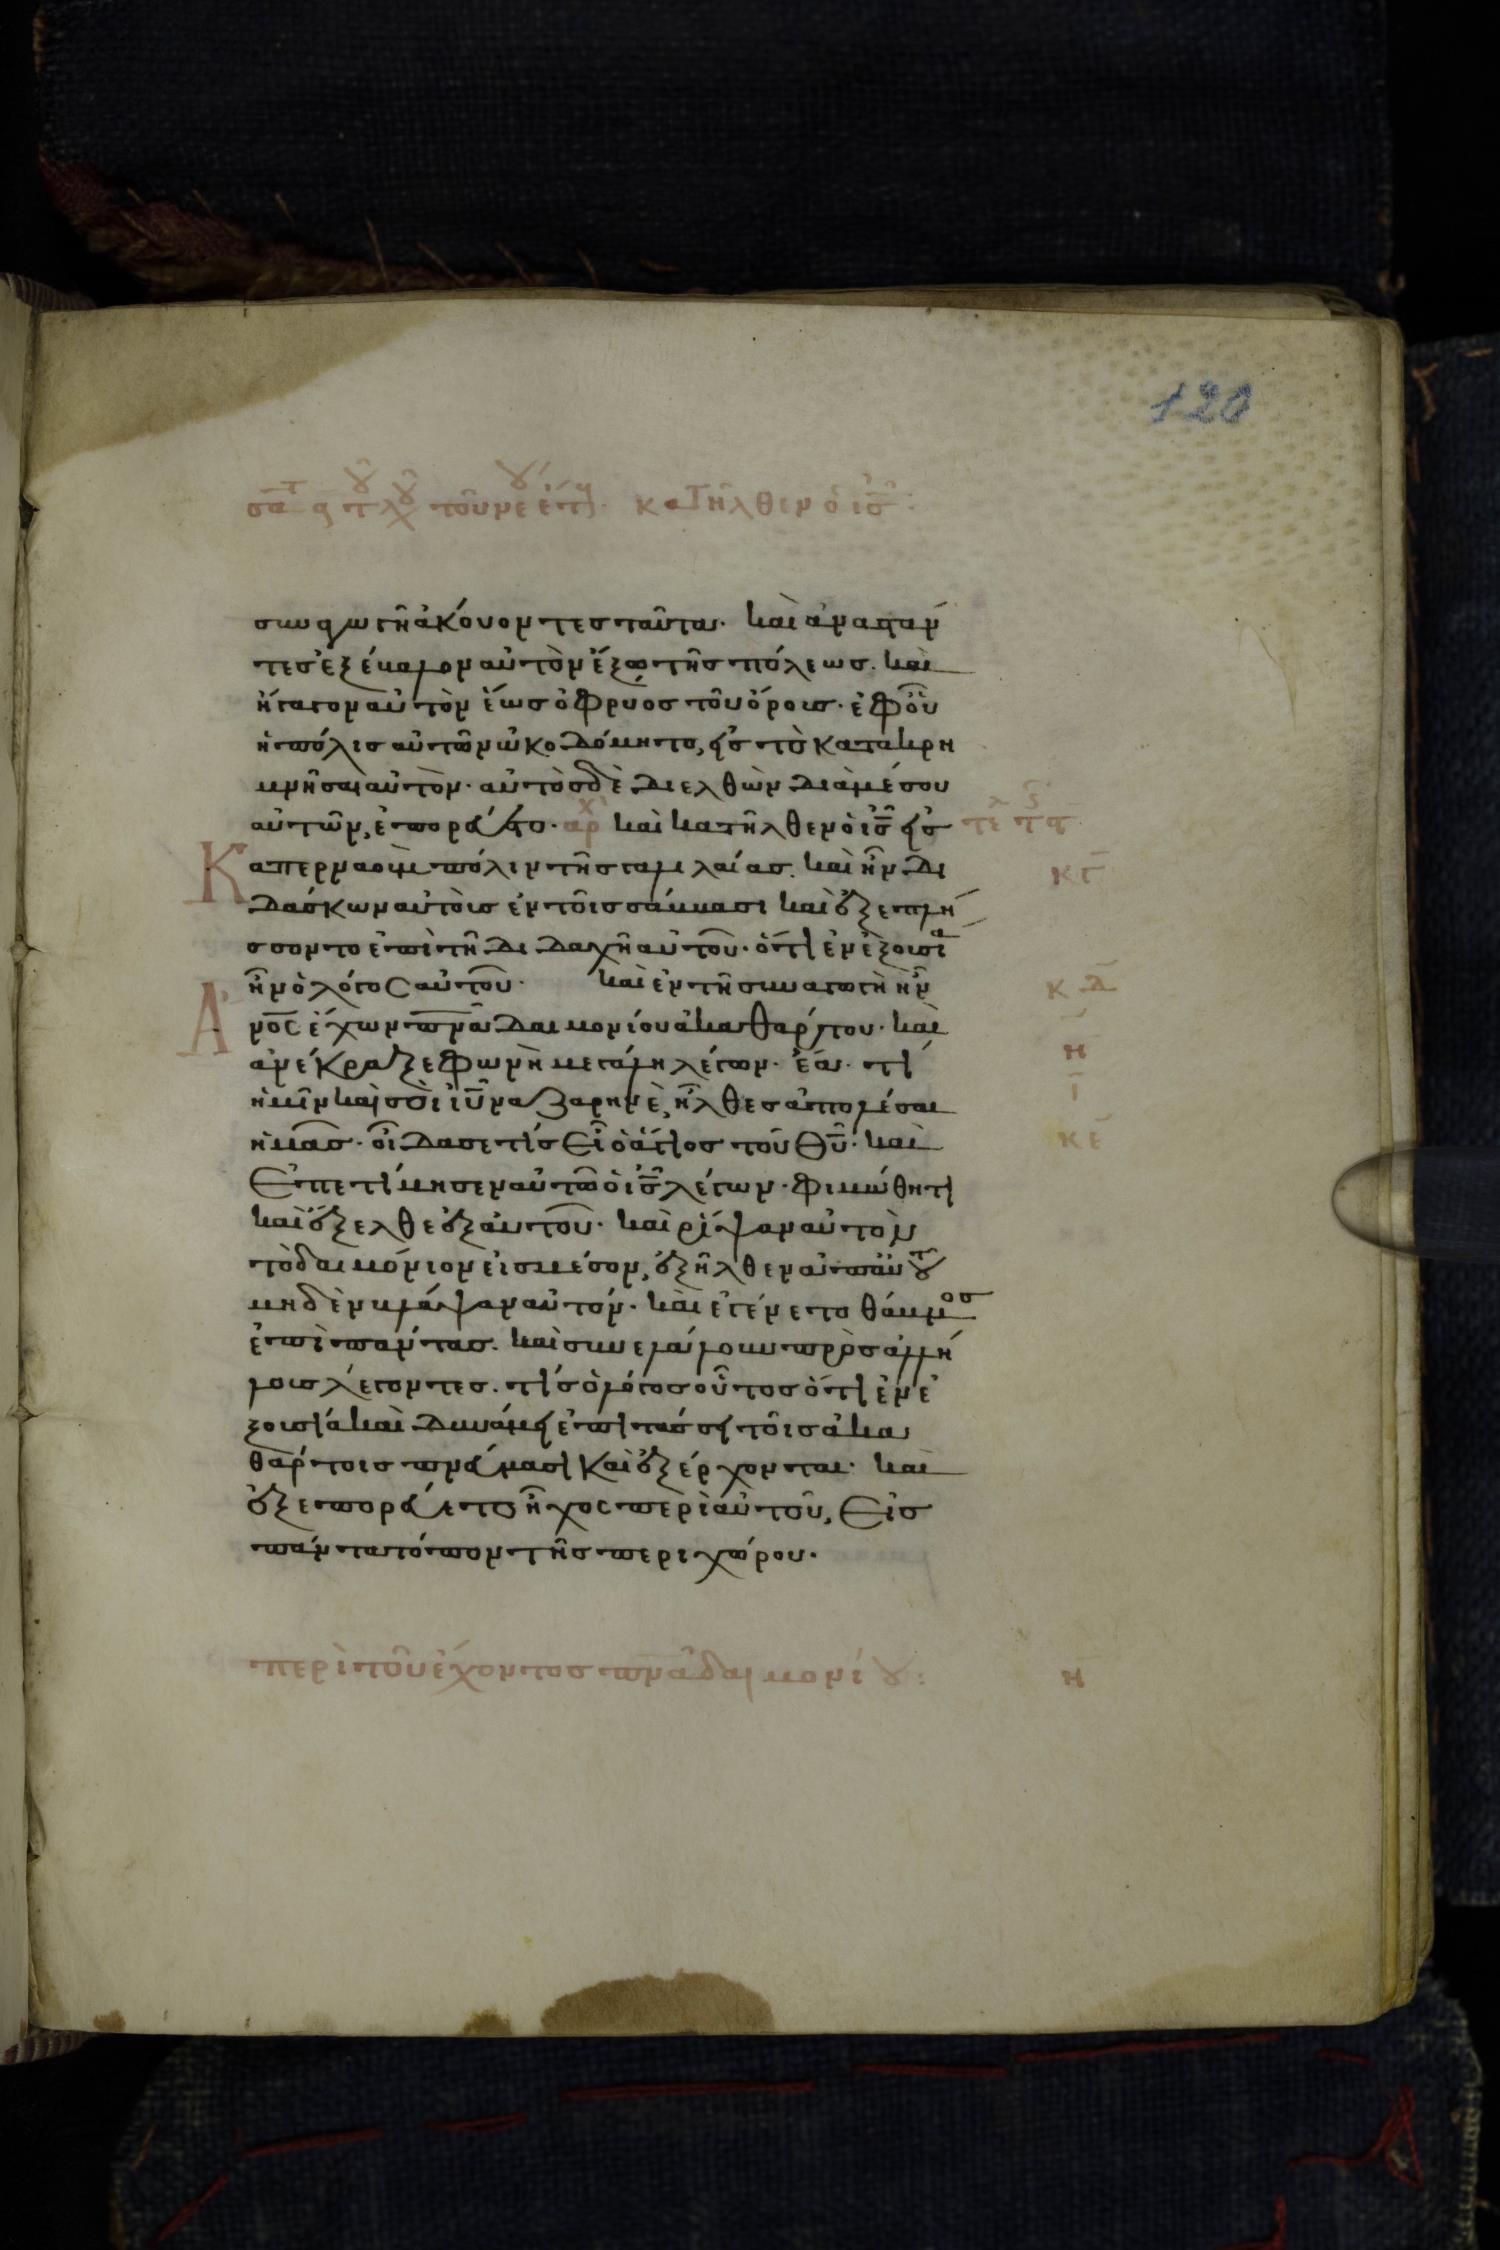 120
κατῆλθεν ὁ ις̅:
συναγωγῆ ἀκόυοντες ταῦτα· καὶ ἀναπάν
τες ἐξέβαλον αὐτὸν ἔξω τῆς πόλεως. καὶ
ἤγαγον αὐτὸν ἕως ὀφρύος τοῦ ὄρους· ἐφ οὗ
ἡ πόλις αὐτῶν ὠκοδόμητο, εἰς τὸ κατακρη
μνῆσαι αὐτὸν· αὐτὸς δὲ διελθὼν διὰ μέσου
αὐτῶν, ἐπορεύετο· αρχ καὶ κατῆλθεν ὁ ις̅ εἰς τελ
Καπερναοὺμ πόλιν τῆς γαλιλαίας. καὶ ἦν δι
κγ
δάσκων αὐτοὺς ἐν τοῖς σάββασι καὶ ἐξεπλή
σσοντο ἐπὶ τῆ διδαχῆ αὐτοῦ· ὅτι ἐν ἐξουσία
ἦν ὁ λόγος αὐτοῦ· καὶ ἐν τῆ συναγωγῆ ἦν
κδ
Ανος ἔχων πνα̅ δαιμονίου ἀκαθάρτου· καὶ
ἀνέκραξε φωνῆ μεγάλη λέγων· ἔα· τί
η
ἡμῖν καὶ σοὶ ιυ̅ ναζαρηνὲ, ἦλθες ἀπολέσαι
ι
ἡμᾶς· οἶδα σε τίς εἶ ὁ ἅγιος τοῦ θυ̅· καὶ
κε
ἐπετίμησεν αὐτῶ ὁ ις̅ λέγων· φιμώθητι
καὶ ἔξελθε ἐξ αὐτοῦ· καὶ ρίψαν αὐτὸν
τὸ δαιμόνιον εἰς μέσον, ἐξῆλθεν ἀπ αὐτοῦ
μηδὲν βλάψαν αὐτόν· καὶ ἐγένετο θάμβος
ἐπὶ πάντας. καὶ συνελάλουν πρὸς ἀλλή
λους λέγοντες. τίς ὁ λόγος οὗτος ὅτι ἐν ἐ
ξουσία καὶ δυνάμει ἐπιτάσσει τοῖς ἀκα
θάρτοις πνάμασι καὶ ἐξέρχονται· καὶ
ἐξεπορεύετο ἦχος περὶ αὐτοῦ, εἰς
πάντα τόπον τῆς περιχώρου·
περὶ τοῦ ἔχοντος πνα̅ δαιμονίου: η